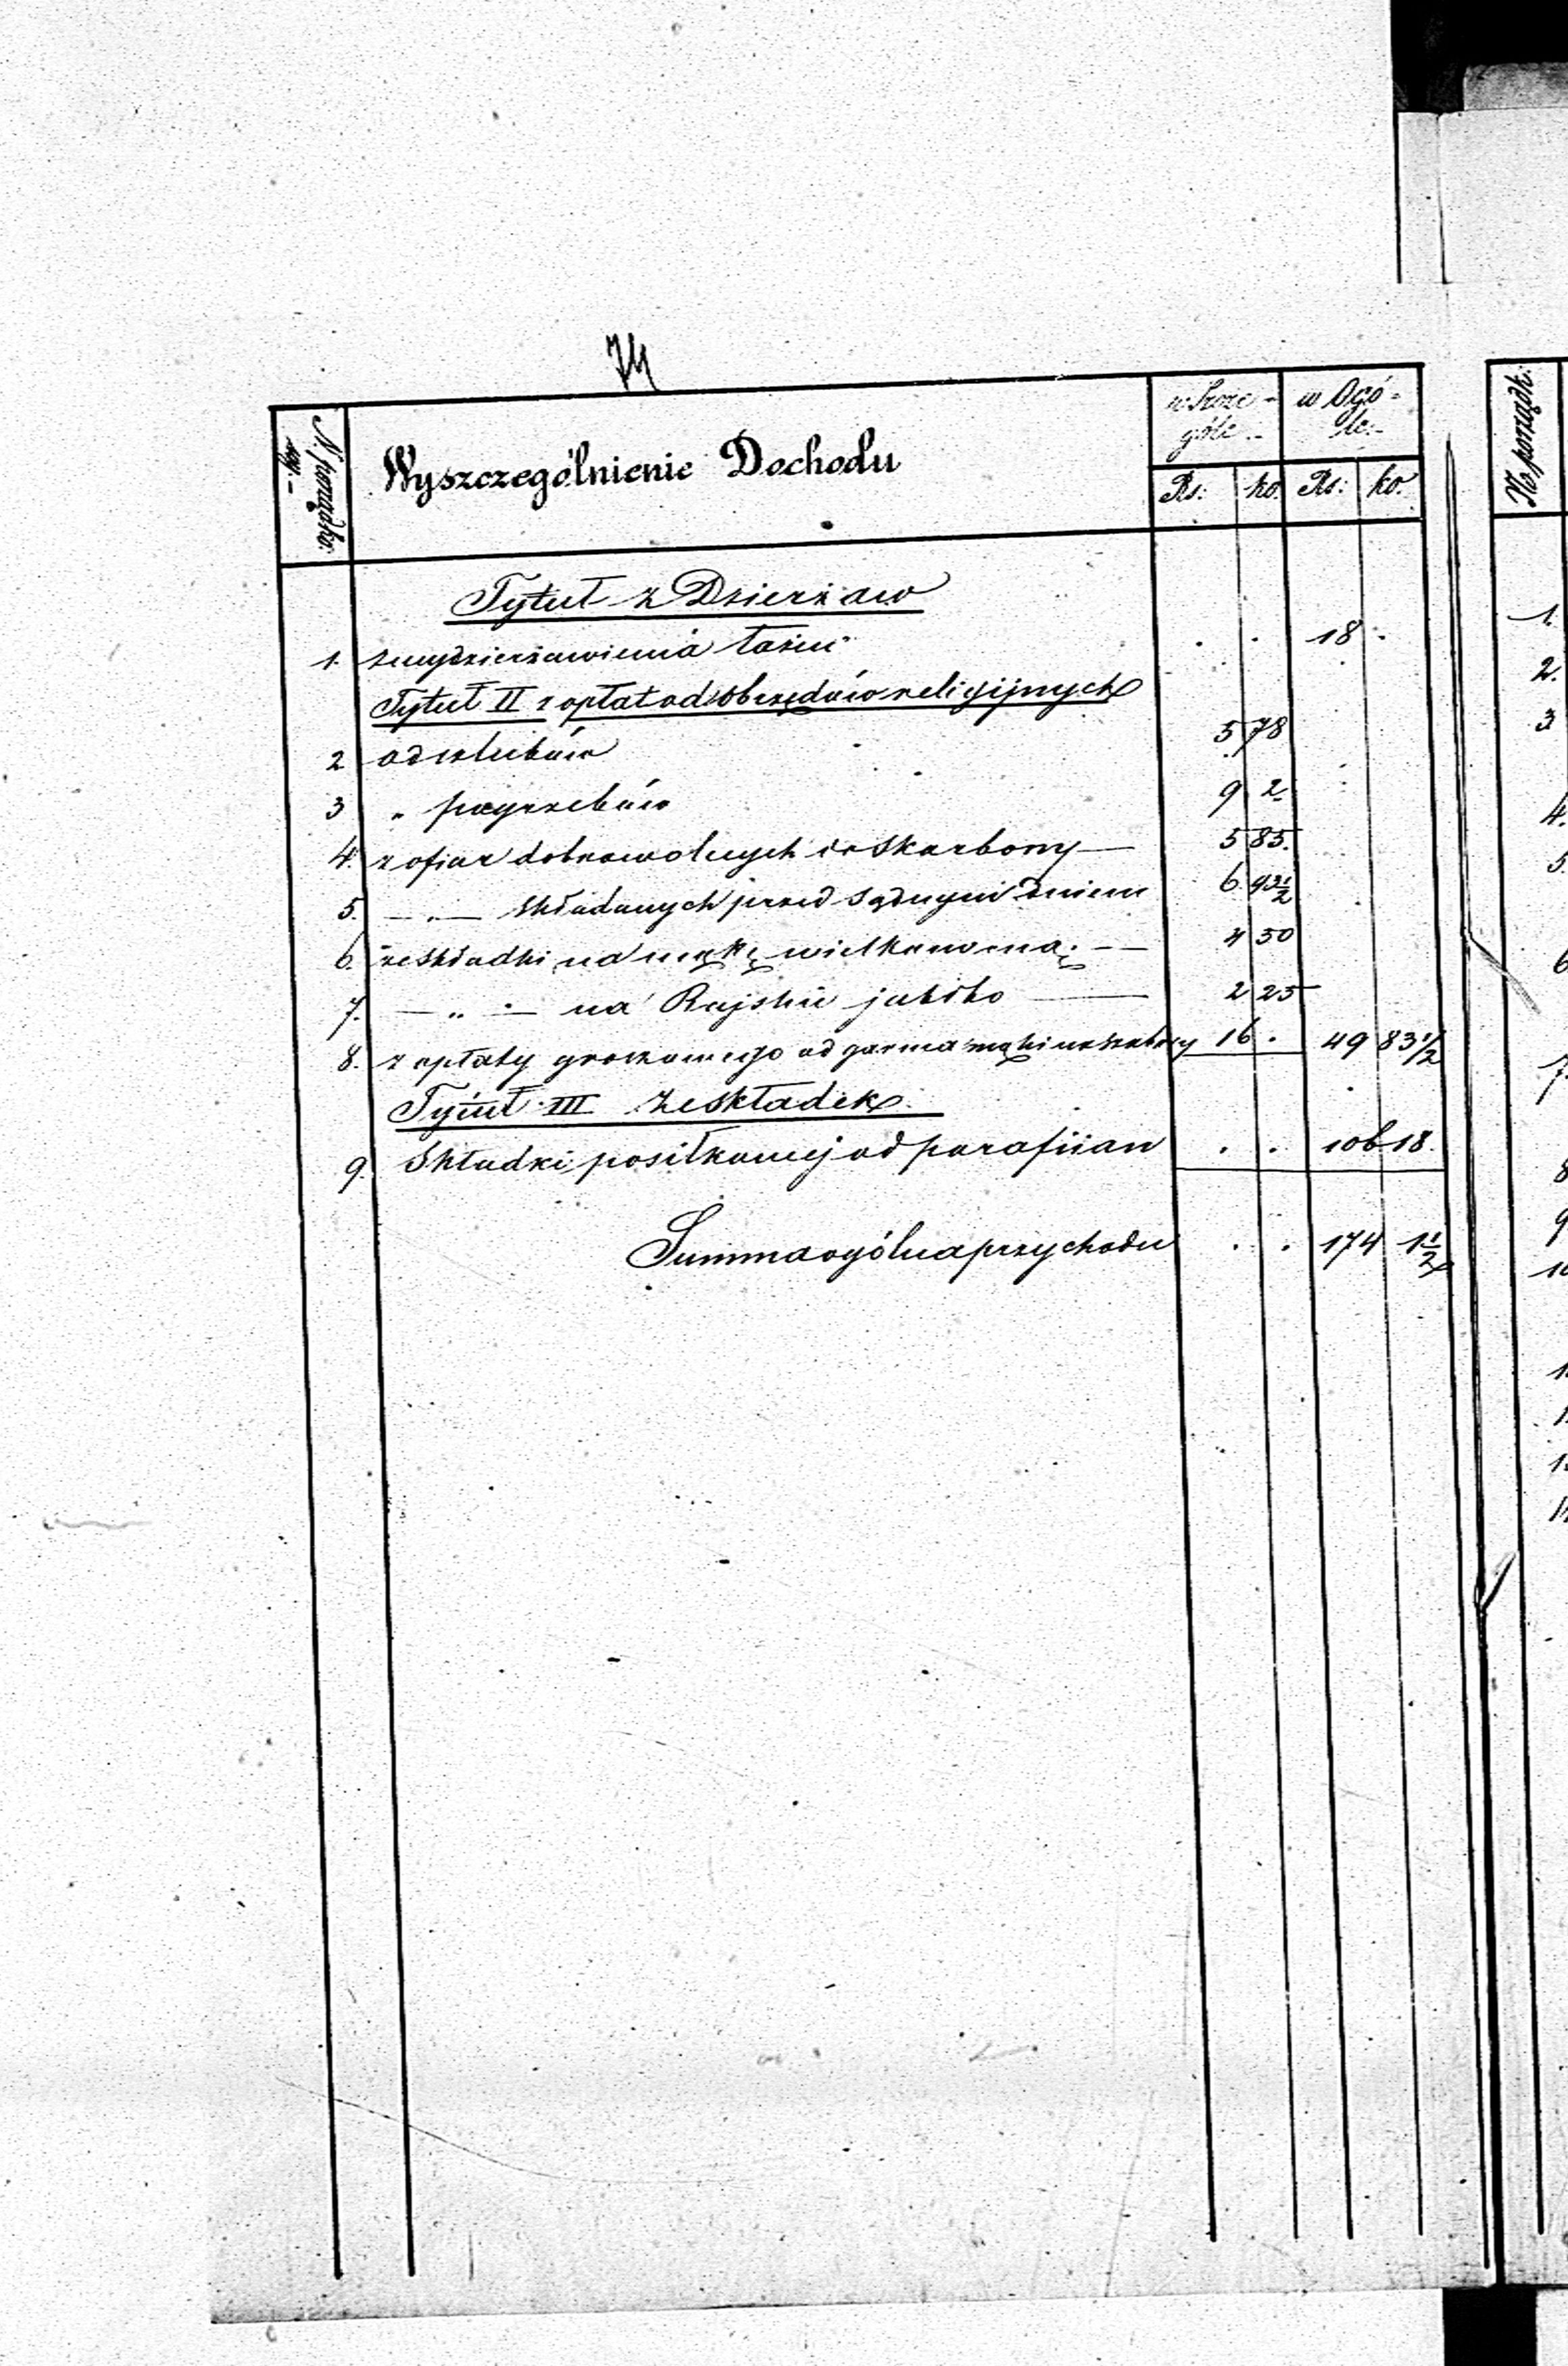 74
N. porządko-
wy.-
Wyszczególnienie Dochodu
w Szcze-
góle.-
w Ogó-
le.-
Rs: ko. Rs: ko.
Tytuł z Dzierżaw
1. z wydzierżawienia łazni . . 18 .
Tytuł II z opłat od obrzędów religijnych
2 od ślubów 5 78
3 " pogrzebów 9 2
4. z ofiar dobrowolnych do skarbony — 5 85.
5. — " — składanych przed sądnym dniem 6. 93½
6. ze składki na mąkę wielkanocną. — 4 50
7. — " — na Rajskie jabłko — 2 25
8. z opłaty groszowego od garnca mąki na szabasy 16 . 49 83½
Tytuł III ze składek
9. Składki posiłkowej od parafiian . . 106 18.
Summa ogólna przychodu . . 174 1½
No porządk.
1.
2.
3
4.
5.
6
7
8
9
10